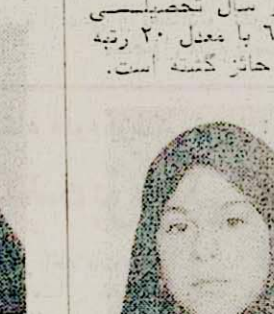 سال تحصیلــی
۶ با معدل ۲۰ رتبه
حائز گشته است.